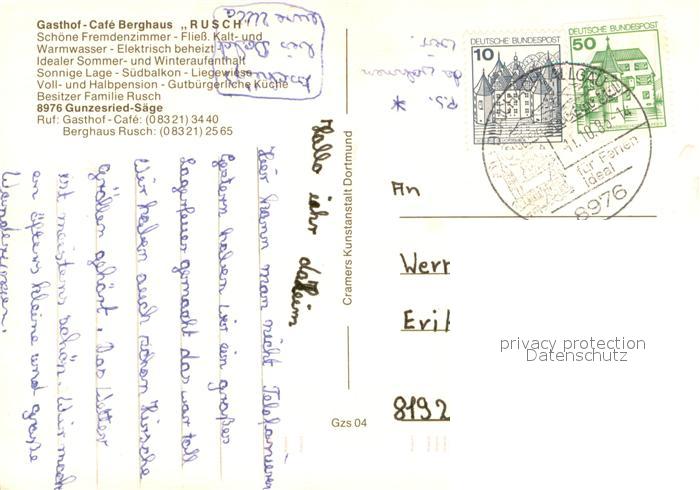 Gasthof - Café Berghaus „RUSCH"
Schöne Fremdenzimmer - Fließ. Kalt- und
Warmwasser - Elektrisch beheizt
Idealer Sommer- und Winteraufenthalt
Sonnige Lage - Südbalkon - Liegewiese
Voll- und Halbpension - Gutbürgerliche Küche
Besitzer Familie Rusch
8976 Gunzesried-Säge
Ruf: Gasthof - Café: (0 83 21) 34 40
Berghaus Rusch: (0 83 21) 25 65
Hallo iahr daheim
Hier kann man nicht Telefonieren
Gestern haben wir ein großes
Lagerfeuer gemacht das war toll
Wir haben auch schon Hirsche
gehört. Das Wetter
ist meistens schön. Wir mach
en öfters kleine und große
Wanderungen.
P.S.
Cramers Kunstanstalt Dortmund
Gzs 04
DEUTSCHE BUNDESPOST
10
DEUTSCHE BUNDESPOST
50
ALLGÄU
11.10.88-14
für Ferien
ideal
8976
An
Werr
Eril
8192
privacy protection
Datenschutz